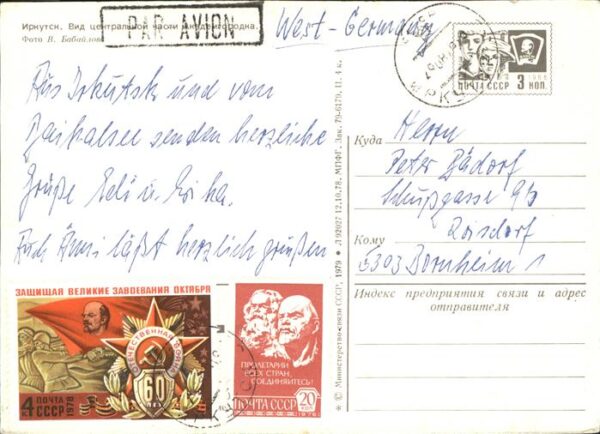 Иркутск. Вид центральной части Академгородка.
Фото В. Бабайлов
PAR AVION
West-Germany
ПОЧТА СССР 3 КОП.
Aus Irkutsk und vom
Baikalsee senden herzliche
Grüße Edi u. Erika.
Auch Änni läßt herzlich grüßen
Куда
Herrn
Peter Bädorf
9b
Roisdorf
Кому
5303 Bornheim 1
Индекс предприятия связи и адрес
отправителя
© Министерство связи СССР, 1979 ✶ Л 92027 12.10.78. МПФГ. Зак. 79-6179. Ц. 4 к.
ЗАЩИЩАЯ ВЕЛИКИЕ ЗАВОЕВАНИЯ ОКТЯБРЯ
60 ЛЕТ
4 К ПОЧТА
СССР 1978
ПРОЛЕТАРИИ
ВСЕХ СТРАН,
СОЕДИНЯЙТЕСЬ!
ПОЧТА СССР 20 КОП.
1976